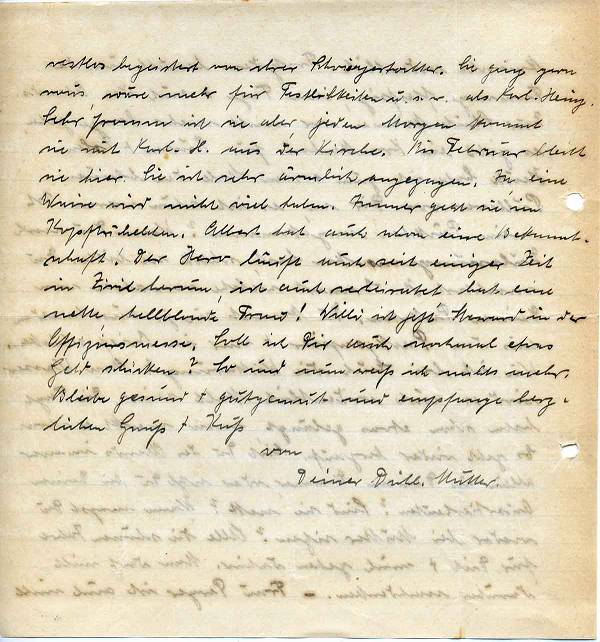 restlos begeistert von ihrer Schwiegertochter. Sie ging gern
raus, wäre mehr für Festlichkeiten u. s. w. als Karl-Heinz.
Sehr fromm ist sie aber, jeden Morgen kommt
sie mit Karl-H. aus der Kirche. Bis Februar bleibt
sie hier. Sie ist sehr ärmlich angezogen. Ja eine
Waise wird nicht viel haben. Immer geht sie im
Kopftüchelchen. Albert hat auch schon eine Bekannt-
schaft. Der Herr läuft auch seit einiger Zeit
in Zivil herum, ist auch verheiratet hat eine
nette hellblonde Frau! Willi ist jetzt Steward in der
Offiziersmesse. Soll ich Dir auch nochmal etwas
Geld schicken? So und nun weiß ich nichts mehr.
Bleibe gesund + gutgemut und empfange herz-
lichen Gruß + Kuß
von
Deiner Mutter.